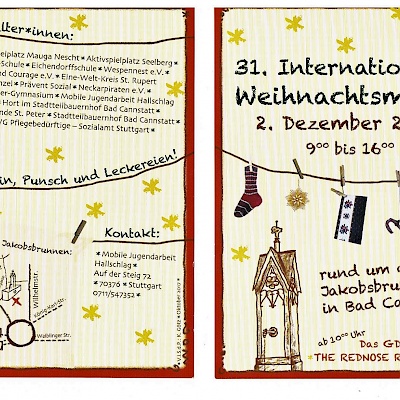 lter*innen:
elplatz Mauga Nescht * Aktivspielplatz Seelberg *
-Schule * Eichendorffschule * Wespennest e.V. *
nd Courage e.V. * Eine-Welt-Kreis St. Rupert
nzel * Prävent Sozial * Neckarpiraten e.V. *
er-Gymnasium * Mobile Jugendarbeit Hallschlag
Hort im Stadtteilbauernhof Bad Cannstatt *
nde St. Peter * Stadtteilbauernhof Bad Cannstatt *
G Pflegebedürftige – Sozialamt Stuttgart *
in, Punsch und Leckereien!
Jakobsbrunnen:
Wilhelmstr.
König-Karl-Str.
Waiblinger Str.
Kontakt:
* Mobile Jugendarbeit
Hallschlag *
Auf der Steig 72
* 70376 * Stuttgart
0711/547352 *
31. Internatio
Weihnachtsm
2. Dezember 2
9°° bis 16°°
rund um d
Jakobsbru
in Bad Ca
ab 10°° Uhr
Das GD
* THE REDNOSE R